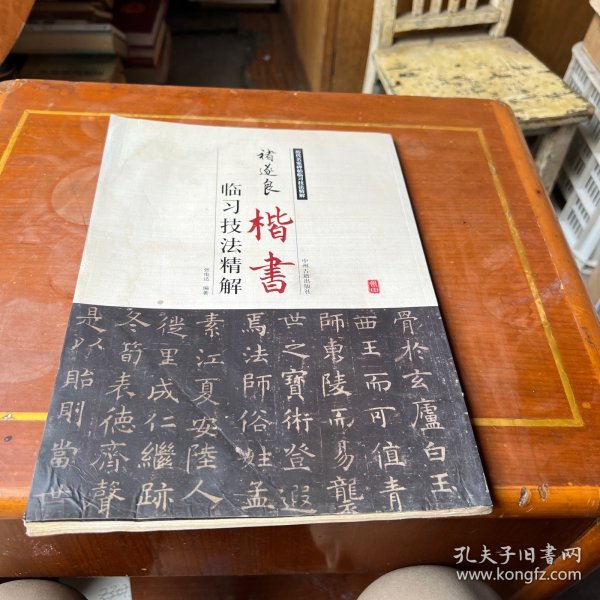 历代名家碑帖临习技法精解
褚遂良
楷書
临习技法精解
编著
中州古籍出版社
骨於玄廬白玉
西王而可值青
師陵而易
世之寶術登遐
焉法師俗姓孟
素江夏安陸人
徙里成仁繼跡
冬筍表德齊聲
是以貽則當世
孔夫子旧书网
www.kongfz.com